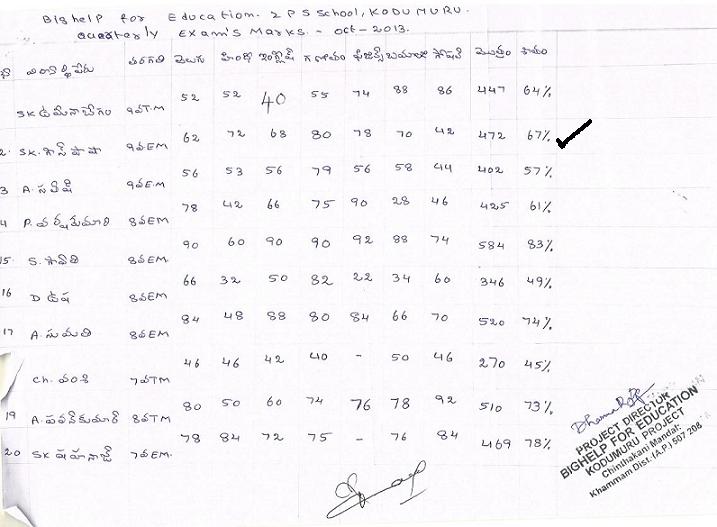 Bighelp for Education. Z P S School, KODUMURU.
Quarterly Exam's Marks. - Oct - 2013.
తరగతి తెలుగు హింది ఇంగ్లీష్ గణితం ఫిజిక్స్ మొత్తం శాతం
SK 9వT.M 52 52 40 55 74 88 86 447 64%
2. SK. 9వEM 62 72 68 80 78 70 42 472 67%
3 A. 9వE.M 56 53 56 79 56 58 44 402 57%
4 P. 8వEM 78 42 66 75 90 28 46 425 61%
15 S. 8వEM 90 60 90 90 92 88 74 584 83%
16 D ఉష 8వEM 66 32 50 82 22 34 60 346 49%
17 A. సుమతి 8వEM 84 48 88 80 84 66 70 520 74%
Ch. వంశి 7వTM 46 46 42 40 - 50 46 270 45%
19 A. పవన్ కుమార్ 8వTM 80 50 60 74 76 78 92 510 73%
20 SK షహనాజ్ 7వEM. 78 84 72 75 - 76 84 469 78%
PROJECT DIRECTOR
BIGHELP FOR EDUCATION
KODUMURU PROJECT
Chinthakani Mandal;
Khammam Dist. (A.P.) 507 208